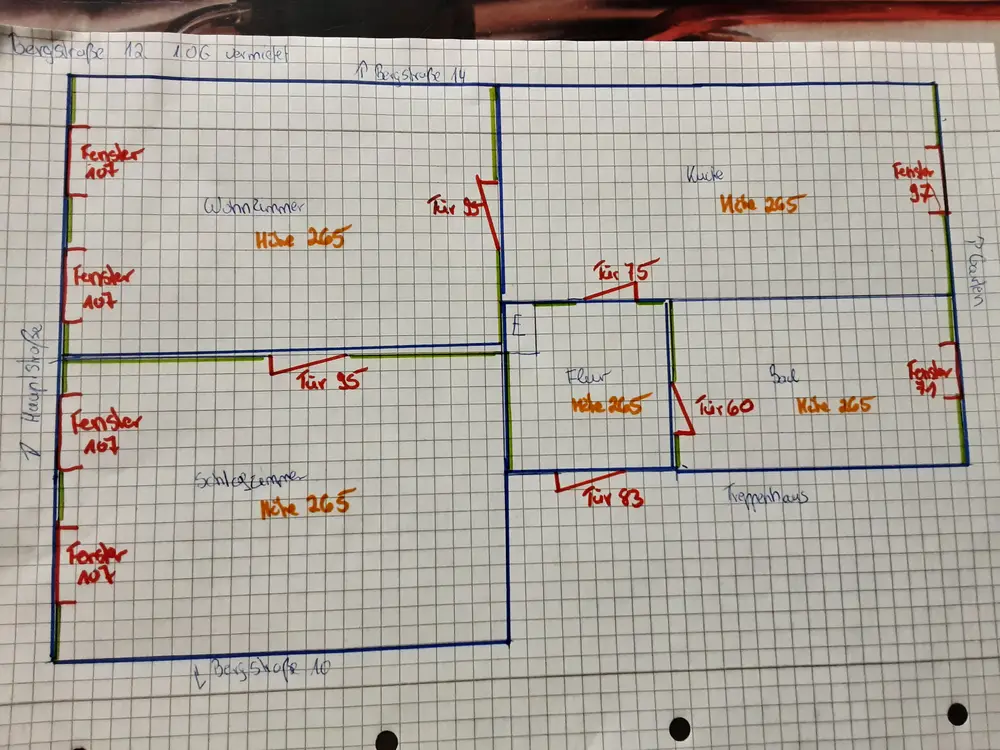 Bergstraße 12 1.OG vermietet
↑ Bergstraße 14
Fenster
107
Wohnzimmer
Höhe 265
Tür 95
Fenster
107
Küche
Höhe 265
Fenster
97
Tür 75
→ Garten
→ Hauptstraße
E
Flur
Höhe 265
Tür 60
Bad
Höhe 265
Fenster
71
Tür 95
Fenster
107
Schlafzimmer
Höhe 265
Tür 83
Treppenhaus
Fenster
107
↓ Bergstraße 10